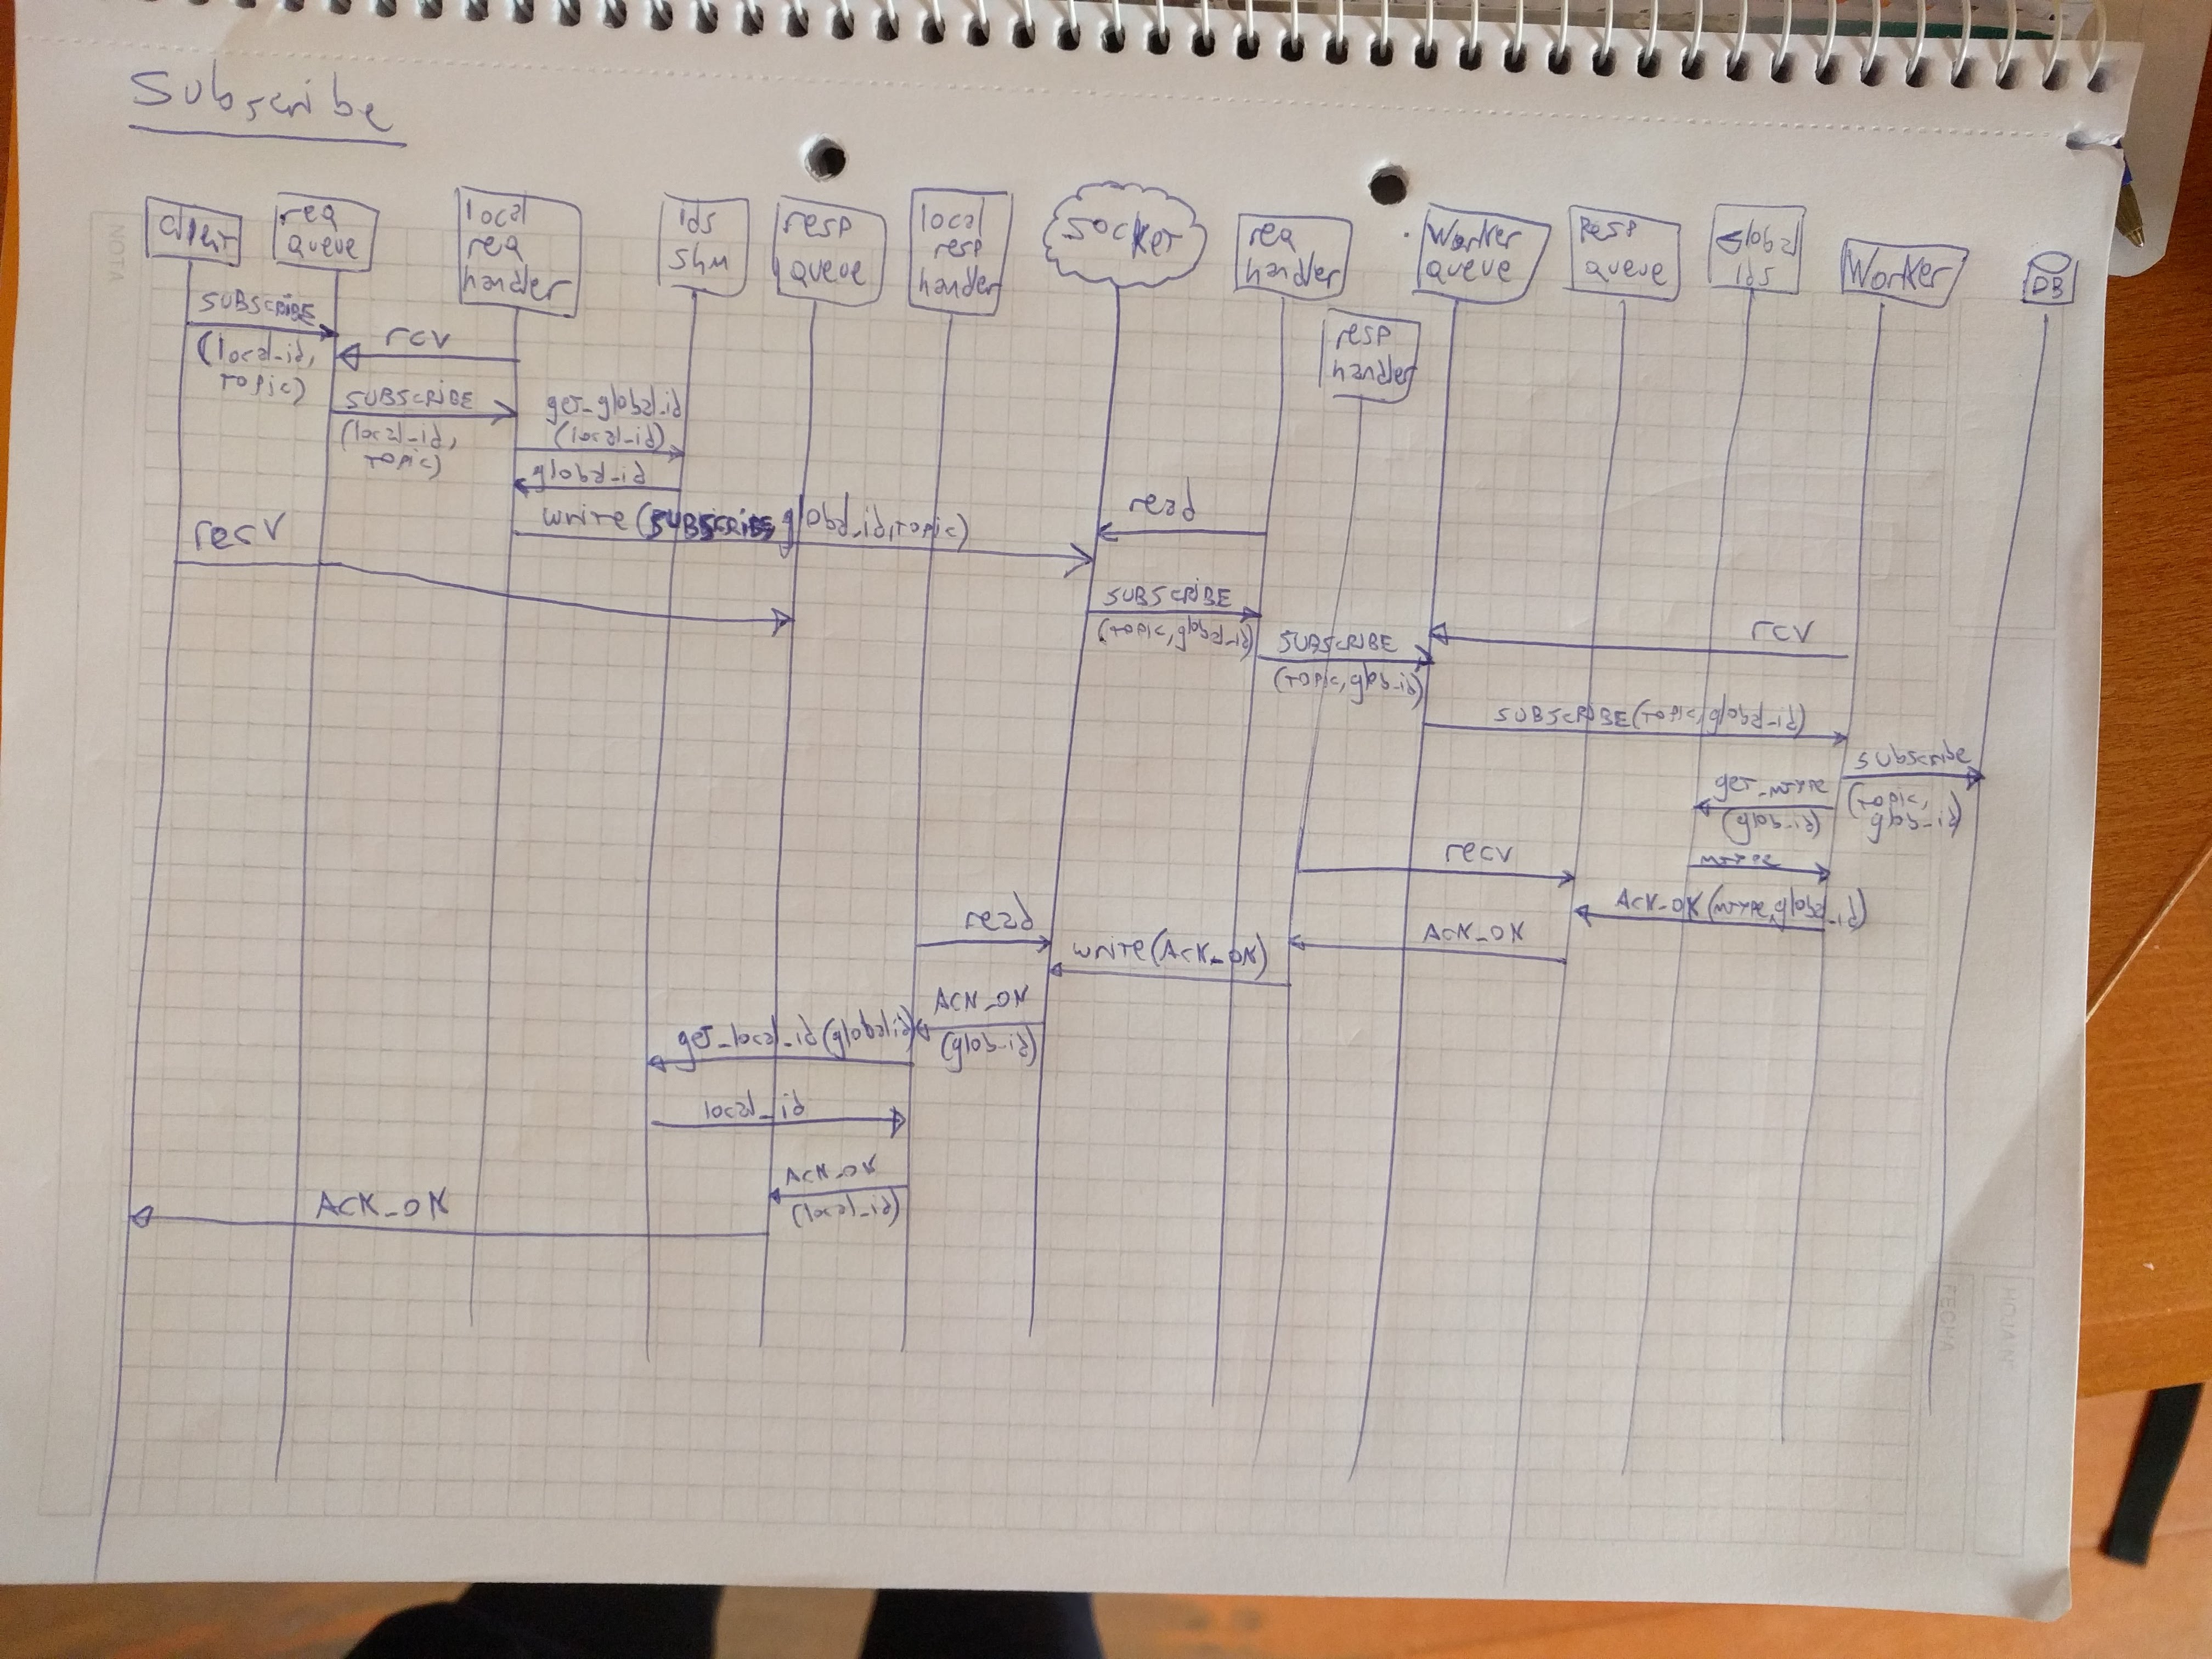 Subscribe
client
req
queue
local
req
handler
ids
shm
resp
queue
local
resp
handler
SOCKET
req
handler
resp
handler
Worker
queue
Resp
queue
Global
ids
Worker
DB
SUBSCRIBE
(local_id,
topic)
rcv
SUBSCRIBE
(local_id,
topic)
get_global_id
(local_id)
global_id
write(SUBSCRIBE, global_id, topic)
recv
read
SUBSCRIBE
(topic, global_id)
SUBSCRIBE
(topic, glob_id)
rcv
SUBSCRIBE(topic, global_id)
subscribe
(topic,
glob_id)
get_mtype
(glob_id)
mtype
recv
ACK_OK(mtype, global_id)
ACK_OK
read
write(ACK_OK)
ACK_OK
(glob_id)
get_local_id(global id)
local_id
ACK_OK
(local_id)
ACK_OK
NOTA
FECHA
HOJA Nº